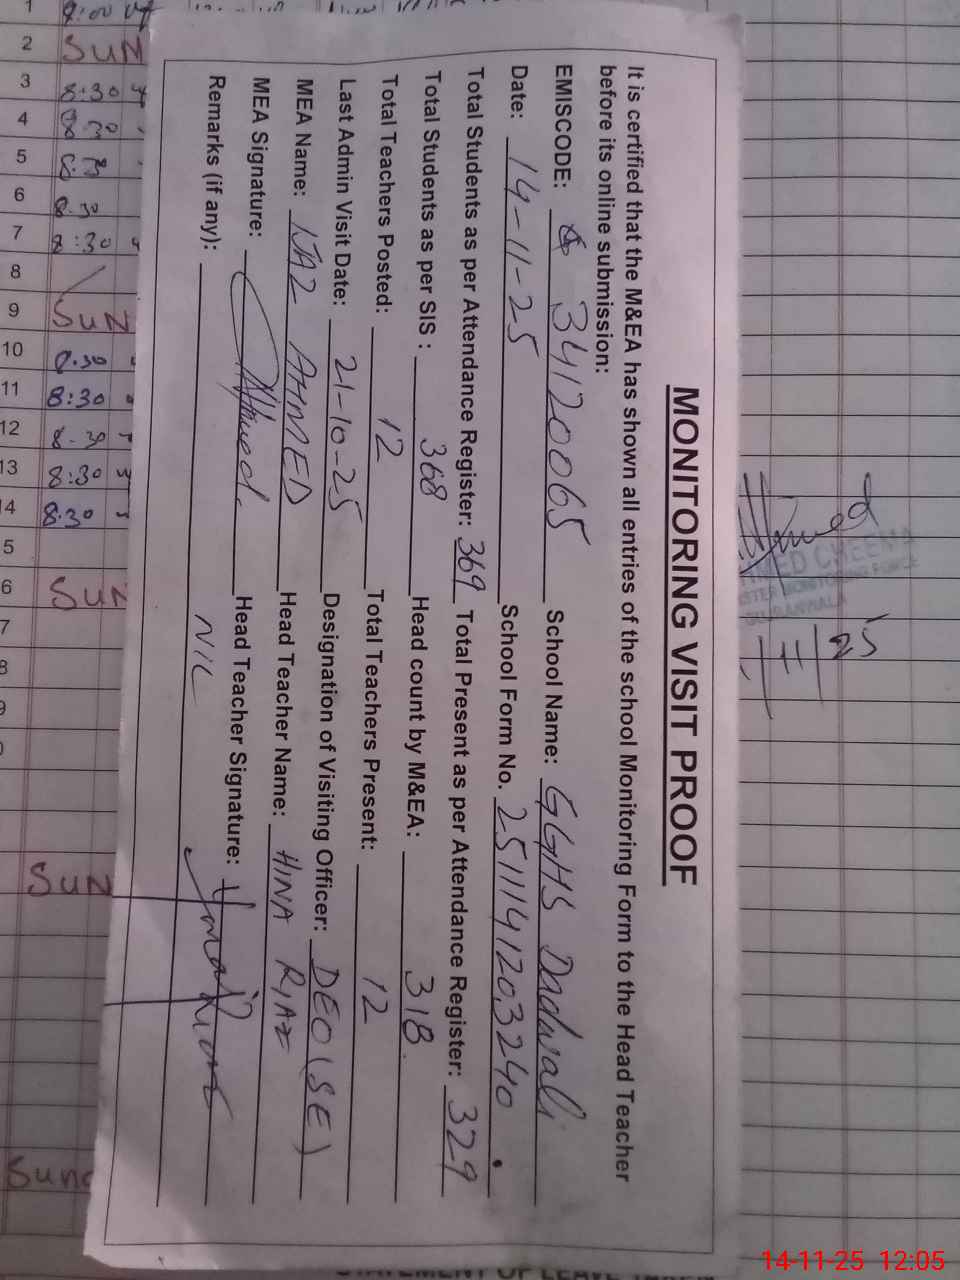 MONITORING VISIT PROOF
It is certified that the M&EA has shown all entries of the school Monitoring Form to the Head Teacher
before its online submission:
EMISCODE: 34120065 School Name: GGHS Dadwali
Date: 14-11-25 School Form No. 251114120.3240
Total Students as per Attendance Register: 369 Total Present as per Attendance Register: 329
Total Students as per SIS : 368 Head count by M&EA: 318
Total Teachers Posted: 12 Total Teachers Present: 12
Last Admin Visit Date: 21-10-25 Designation of Visiting Officer: DEO (SE)
MEA Name: IJAZ AHMED Head Teacher Name: HINA RIAZ
MEA Signature: Ahmed Head Teacher Signature:
Remarks (if any): NIL
1 
2 SUN
3 8:30
4
5
6 8.30
7 8:30
8
9 SUN
10 8.30
11 8:30
12 8.30
13 8:30
14 8:30
5
6 SUN
7
8
9
SUN
Ahmed
AHMED CHEEMA
MONITORING FORCE
GUJRANWALA
11/25
14-11-25 12:05